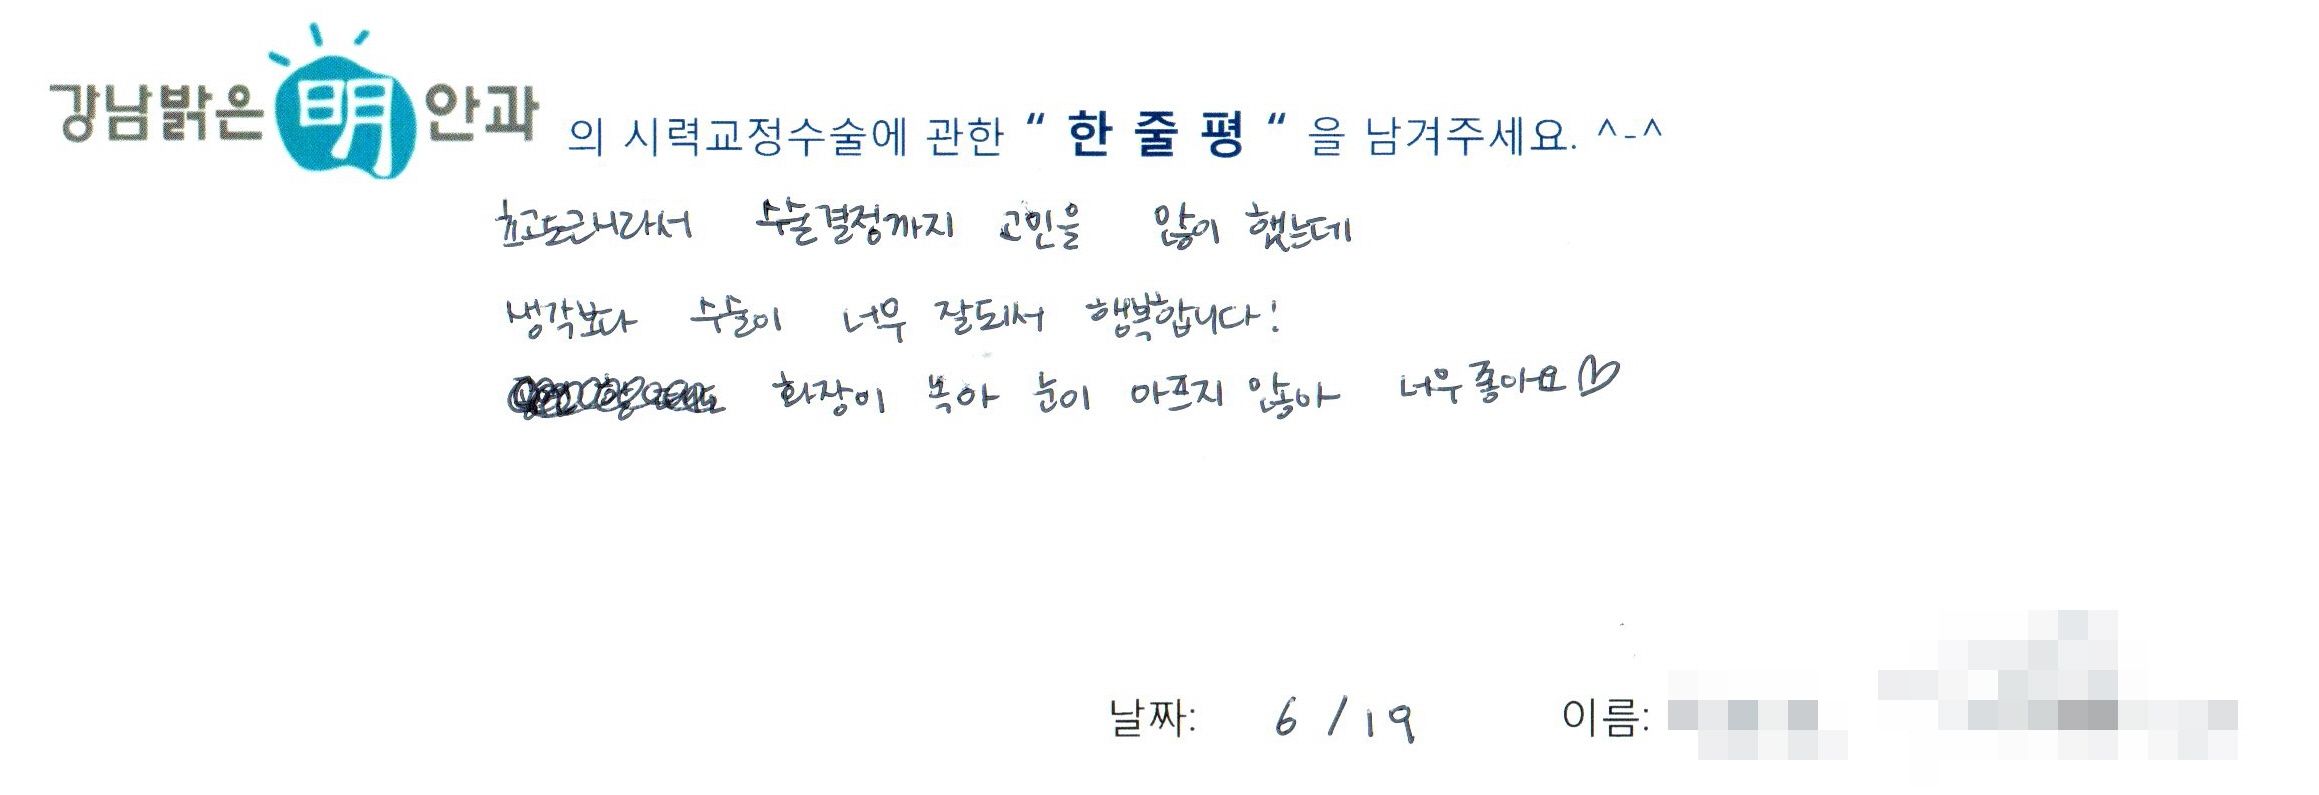 강남밝은明안과 의 시력교정수술에 관한 “ 한 줄 평 “ 을 남겨주세요. ^-^
초고도근시라서 수술결정까지 고민을 많이 했는데
생각보다 수술이 너무 잘되서 행복합니다!
화장이 녹아 눈이 아프지 않아 너무 좋아요♡
날짜: 6 / 19 이름: